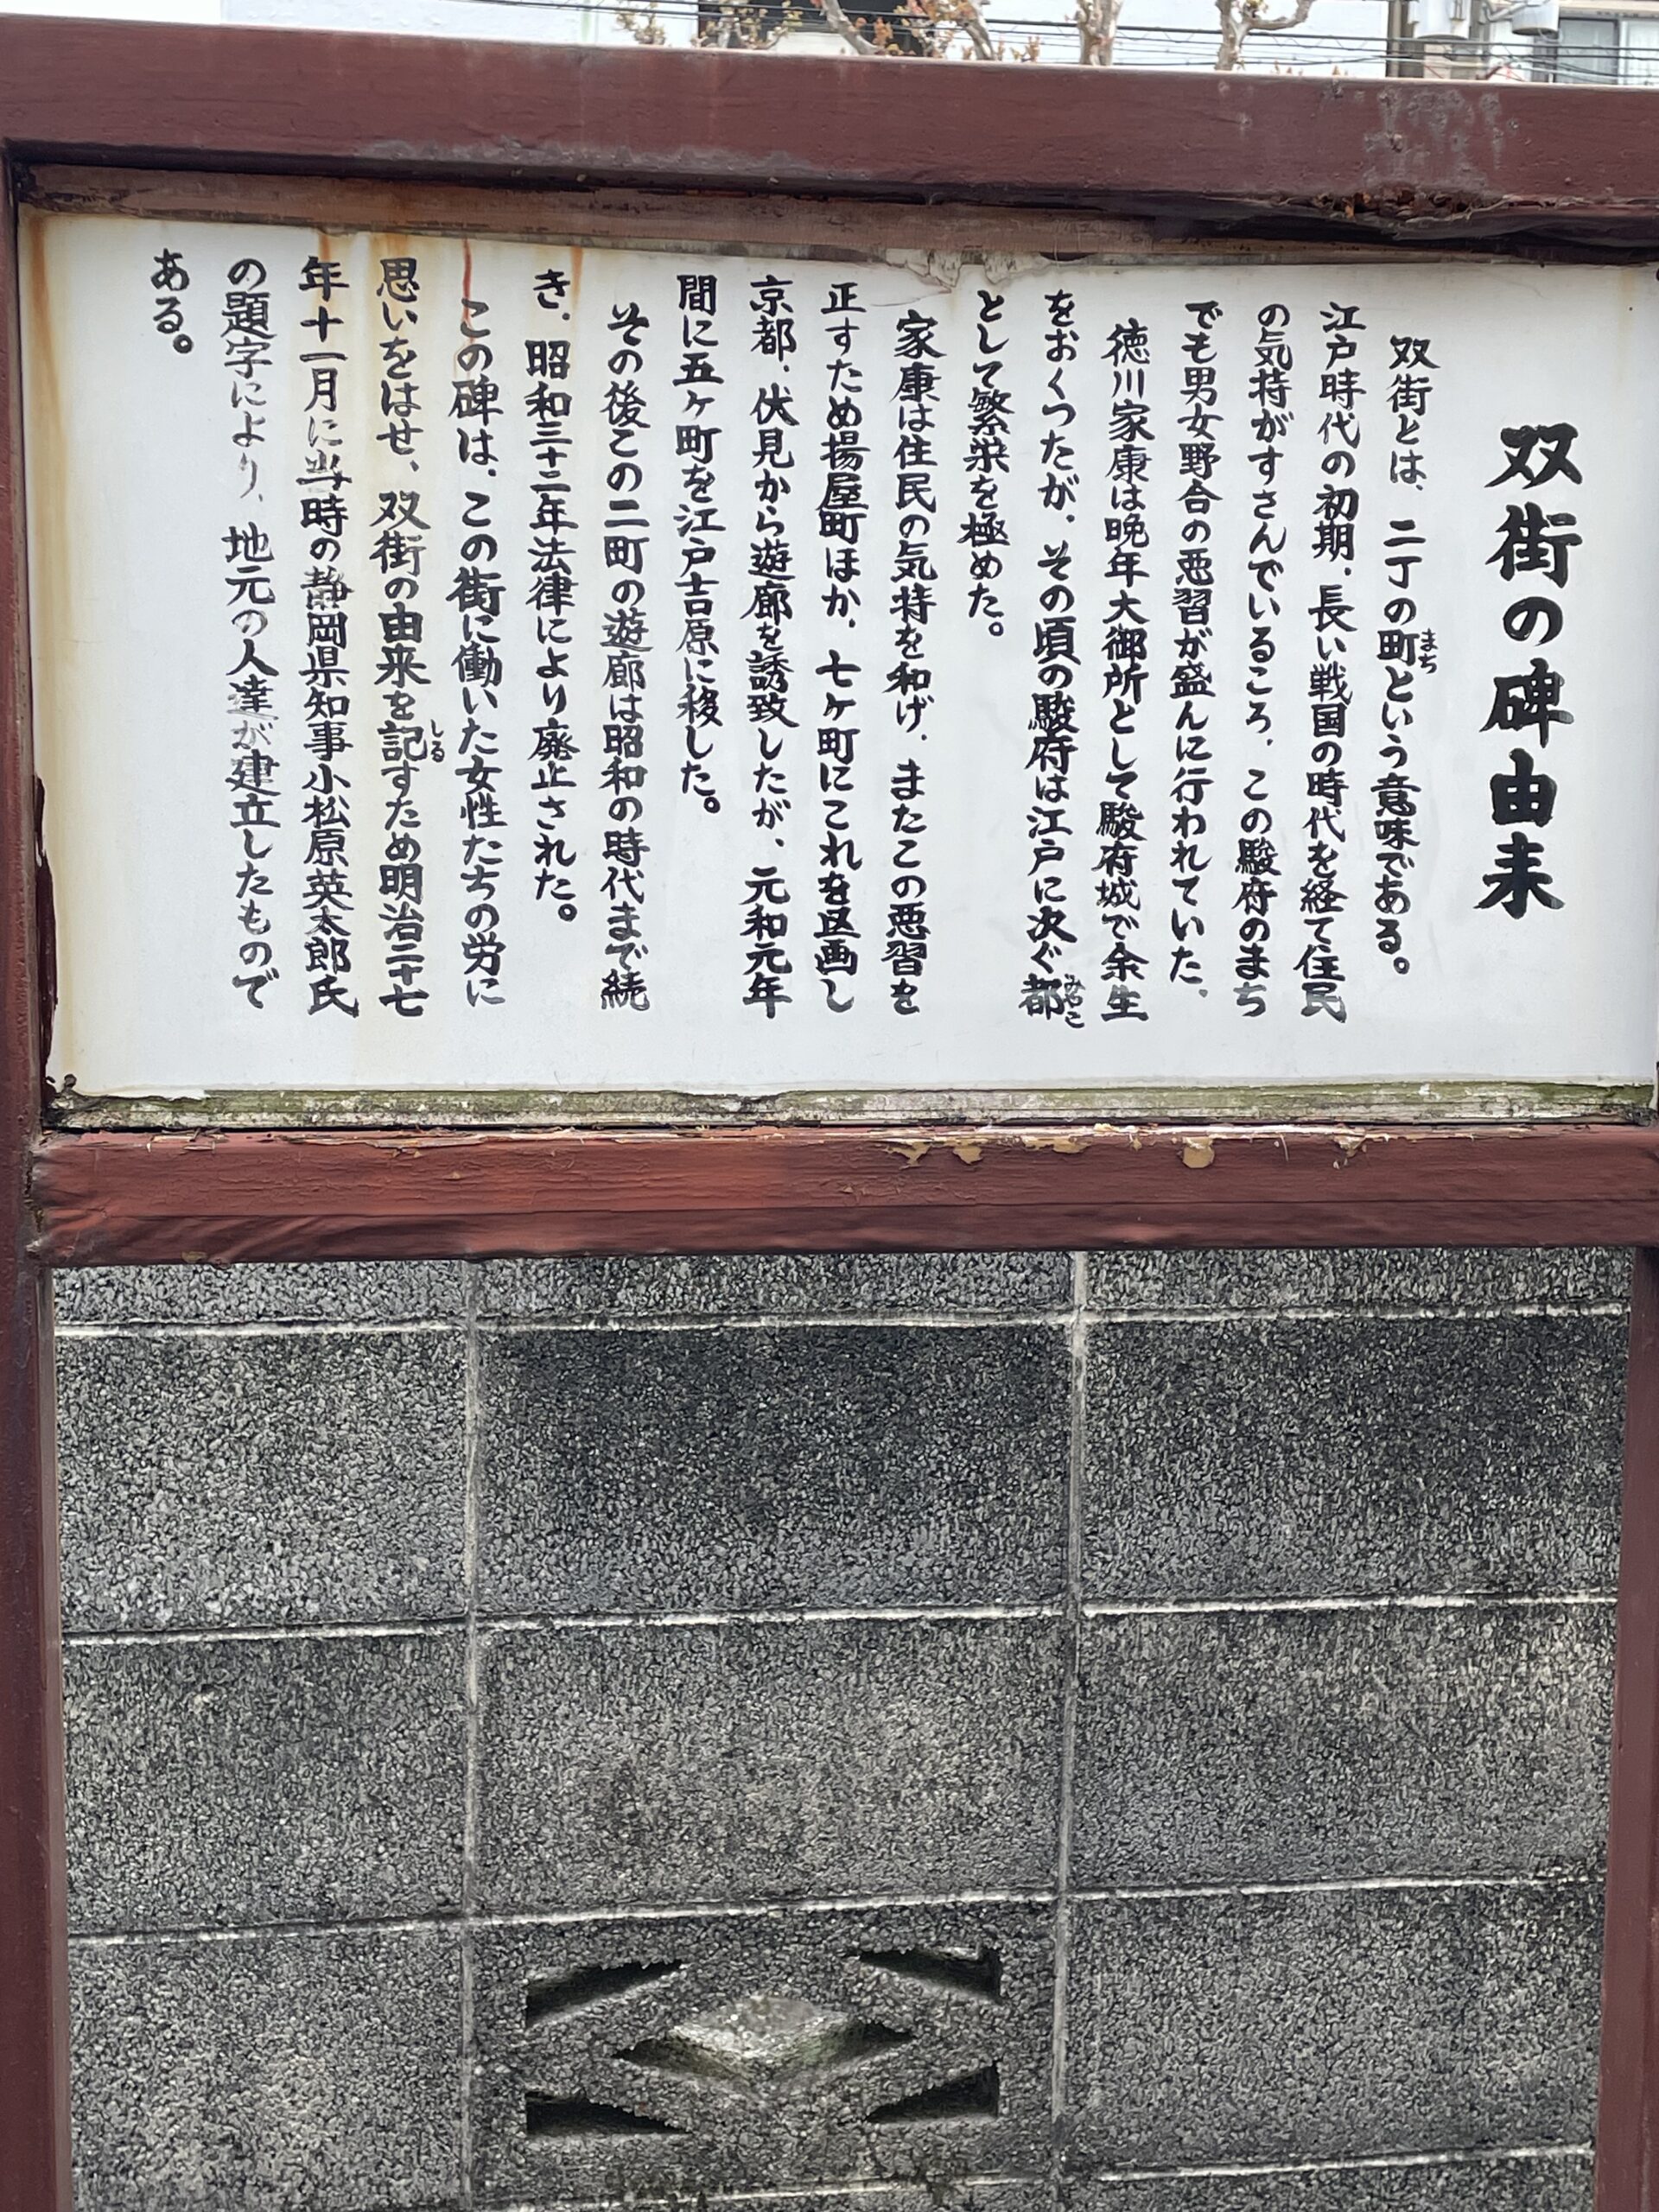 双街の碑由来
双街とは、二丁の町という意味である。
まち
江戸時代の初期、長い戦国の時代を経て住民
の気持がすさんでいるころ、この駿府のまち
でも男女野合の悪習が盛んに行われていた。
徳川家康は晩年大御所として駿府城で余生
をおくつたが、その頃の駿府は江戸に次ぐ都
みやこ
として繁栄を極めた。
家康は住民の気持を和げ、またこの悪習を
正すため揚屋町ほか、七ヶ町にこれを区画し
京都、伏見から遊廊を誘致したが、元和元年
間に五ヶ町を江戸吉原に移した。
その後この二町の遊廊は昭和の時代まで続
き、昭和三十二年法律により廃止された。
この碑は、この街に働いた女性たちの労に
思いをはせ、双街の由来を記すため明治二十七
しる
年十一月に当時の静岡県知事小松原英太郎氏
の題字により、地元の人達が建立したもので
ある。